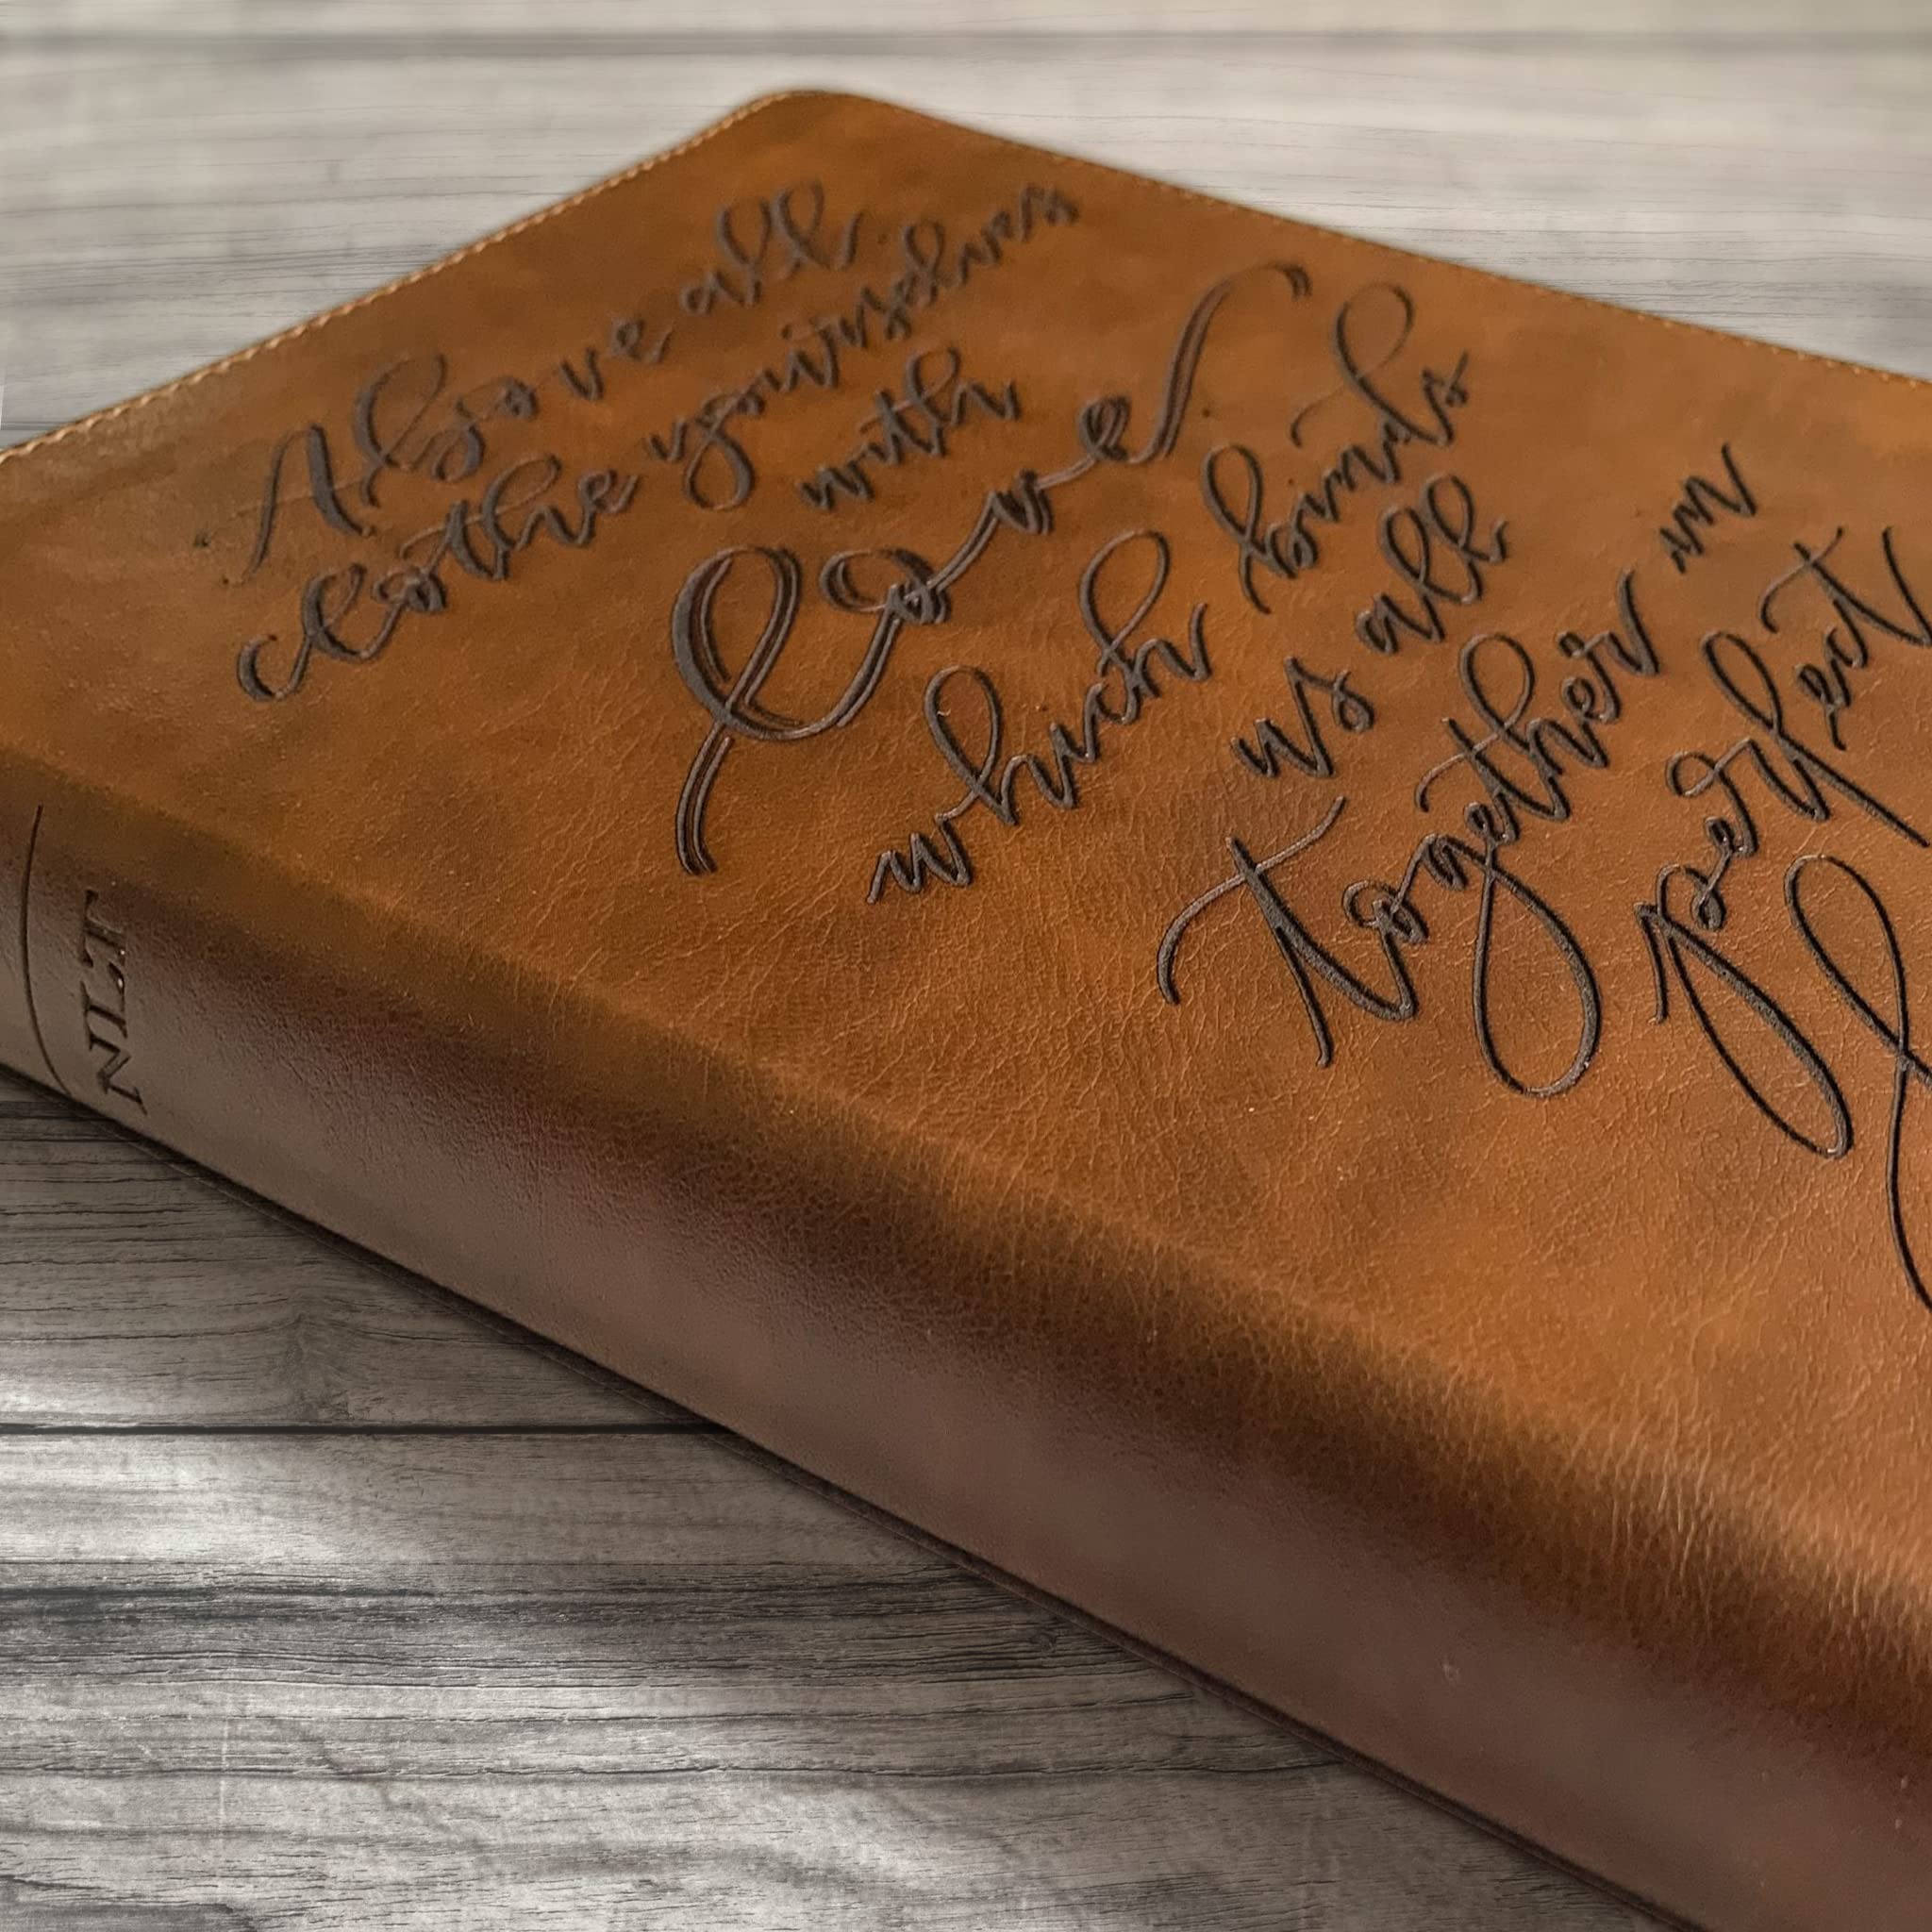 Above all
clothe yourselves
with
Love
which binds
us all
together in
perfect
NLT